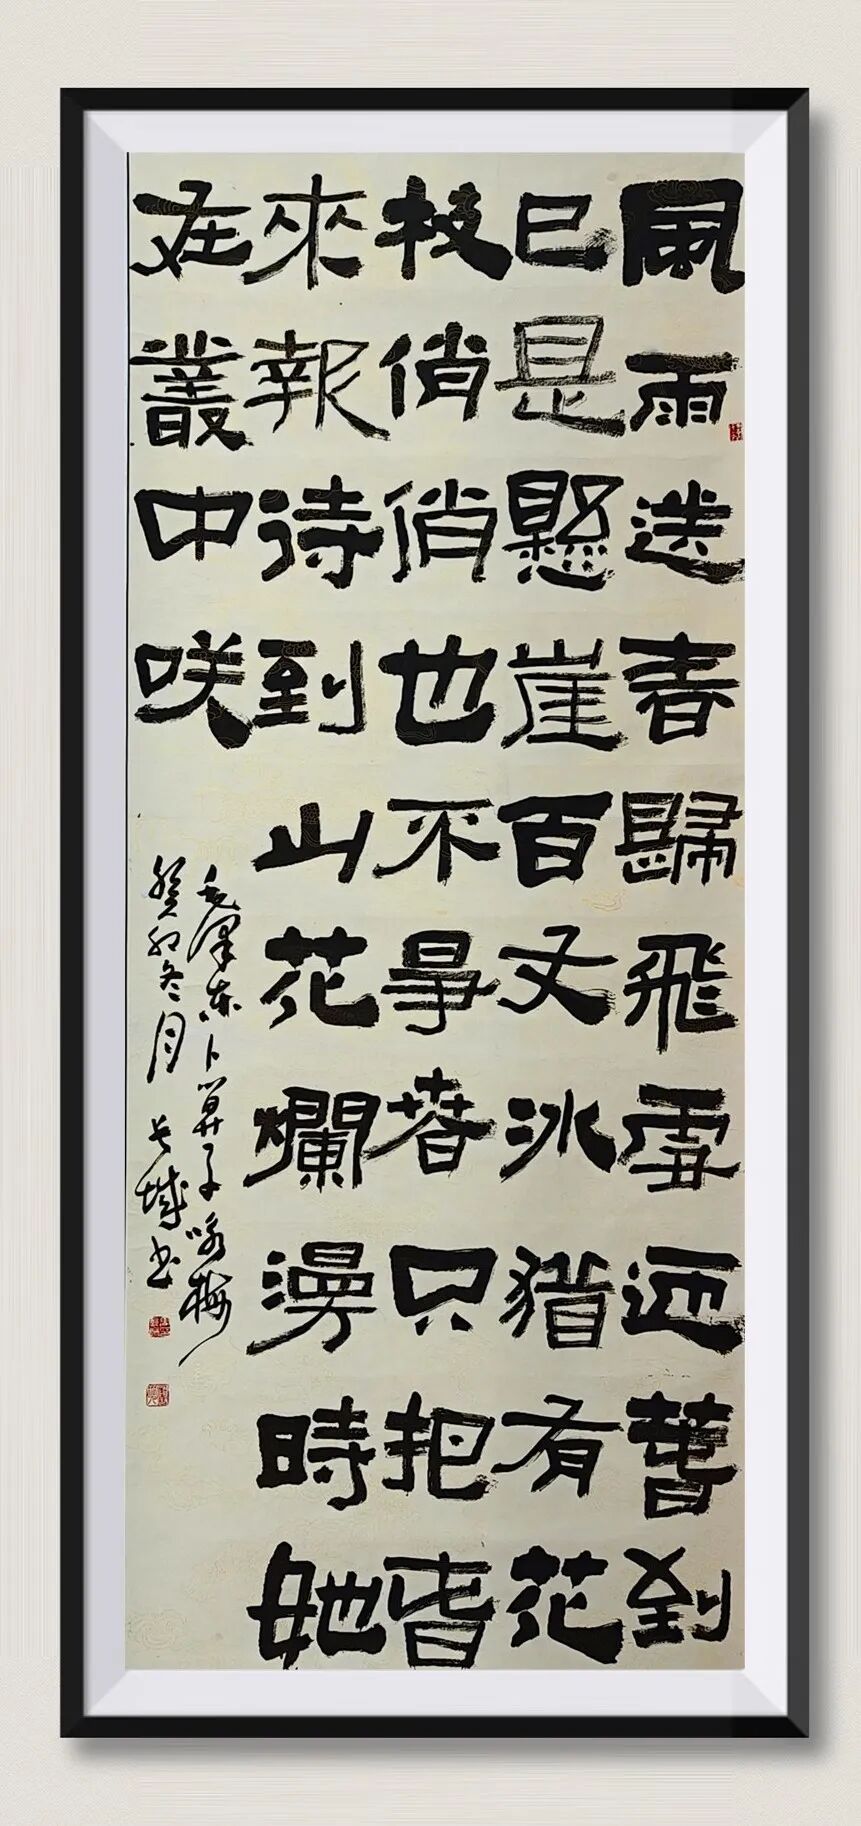 風雨送春歸飛雪迎萅到
已是懸崖百丈冰猶有花
枝俏俏也不爭春只把春
來報待到山花爛漫時她
在叢中咲
毛澤东卜算子咏梅
癸卯冬月 长城书